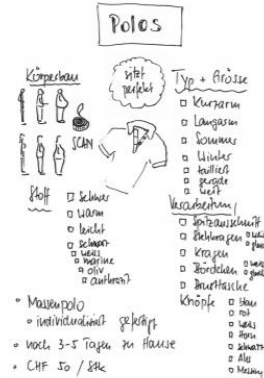 Polos
Körperbau
sitzt
perfekt
SCAN
Typ + Grösse
Kurzarm
Langarm
Sommer
Winter
tailliert
gerade
weit
Stoff
schwer
warm
leicht
schwarz
weiss
marine
oliv
anthrazit
Verarbeitung
Spitzausschnitt
Stehkragen
Kragen
Bördchen
Brusttasche
Knöpfe
blau
rot
weiss
Horn
schwarz
Alu
Messing
Massenpolo
individualisiert gefertigt
nach 3-5 Tagen zu Hause
CHF 50 / Stk